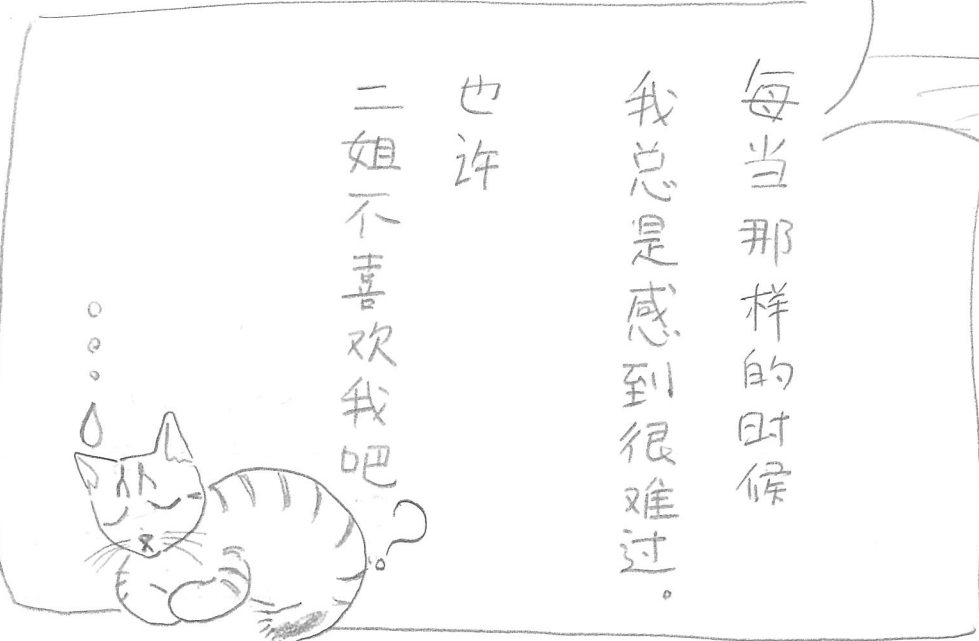 每当那样的时候
我总是感到很难过。
也许
二姐不喜欢我吧?